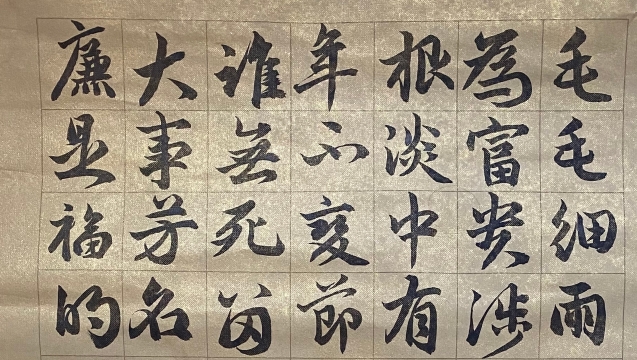 毛毛細雨
為富貴涉
根淡中有
年不變節
誰無死留
大事芳名
廉是福的